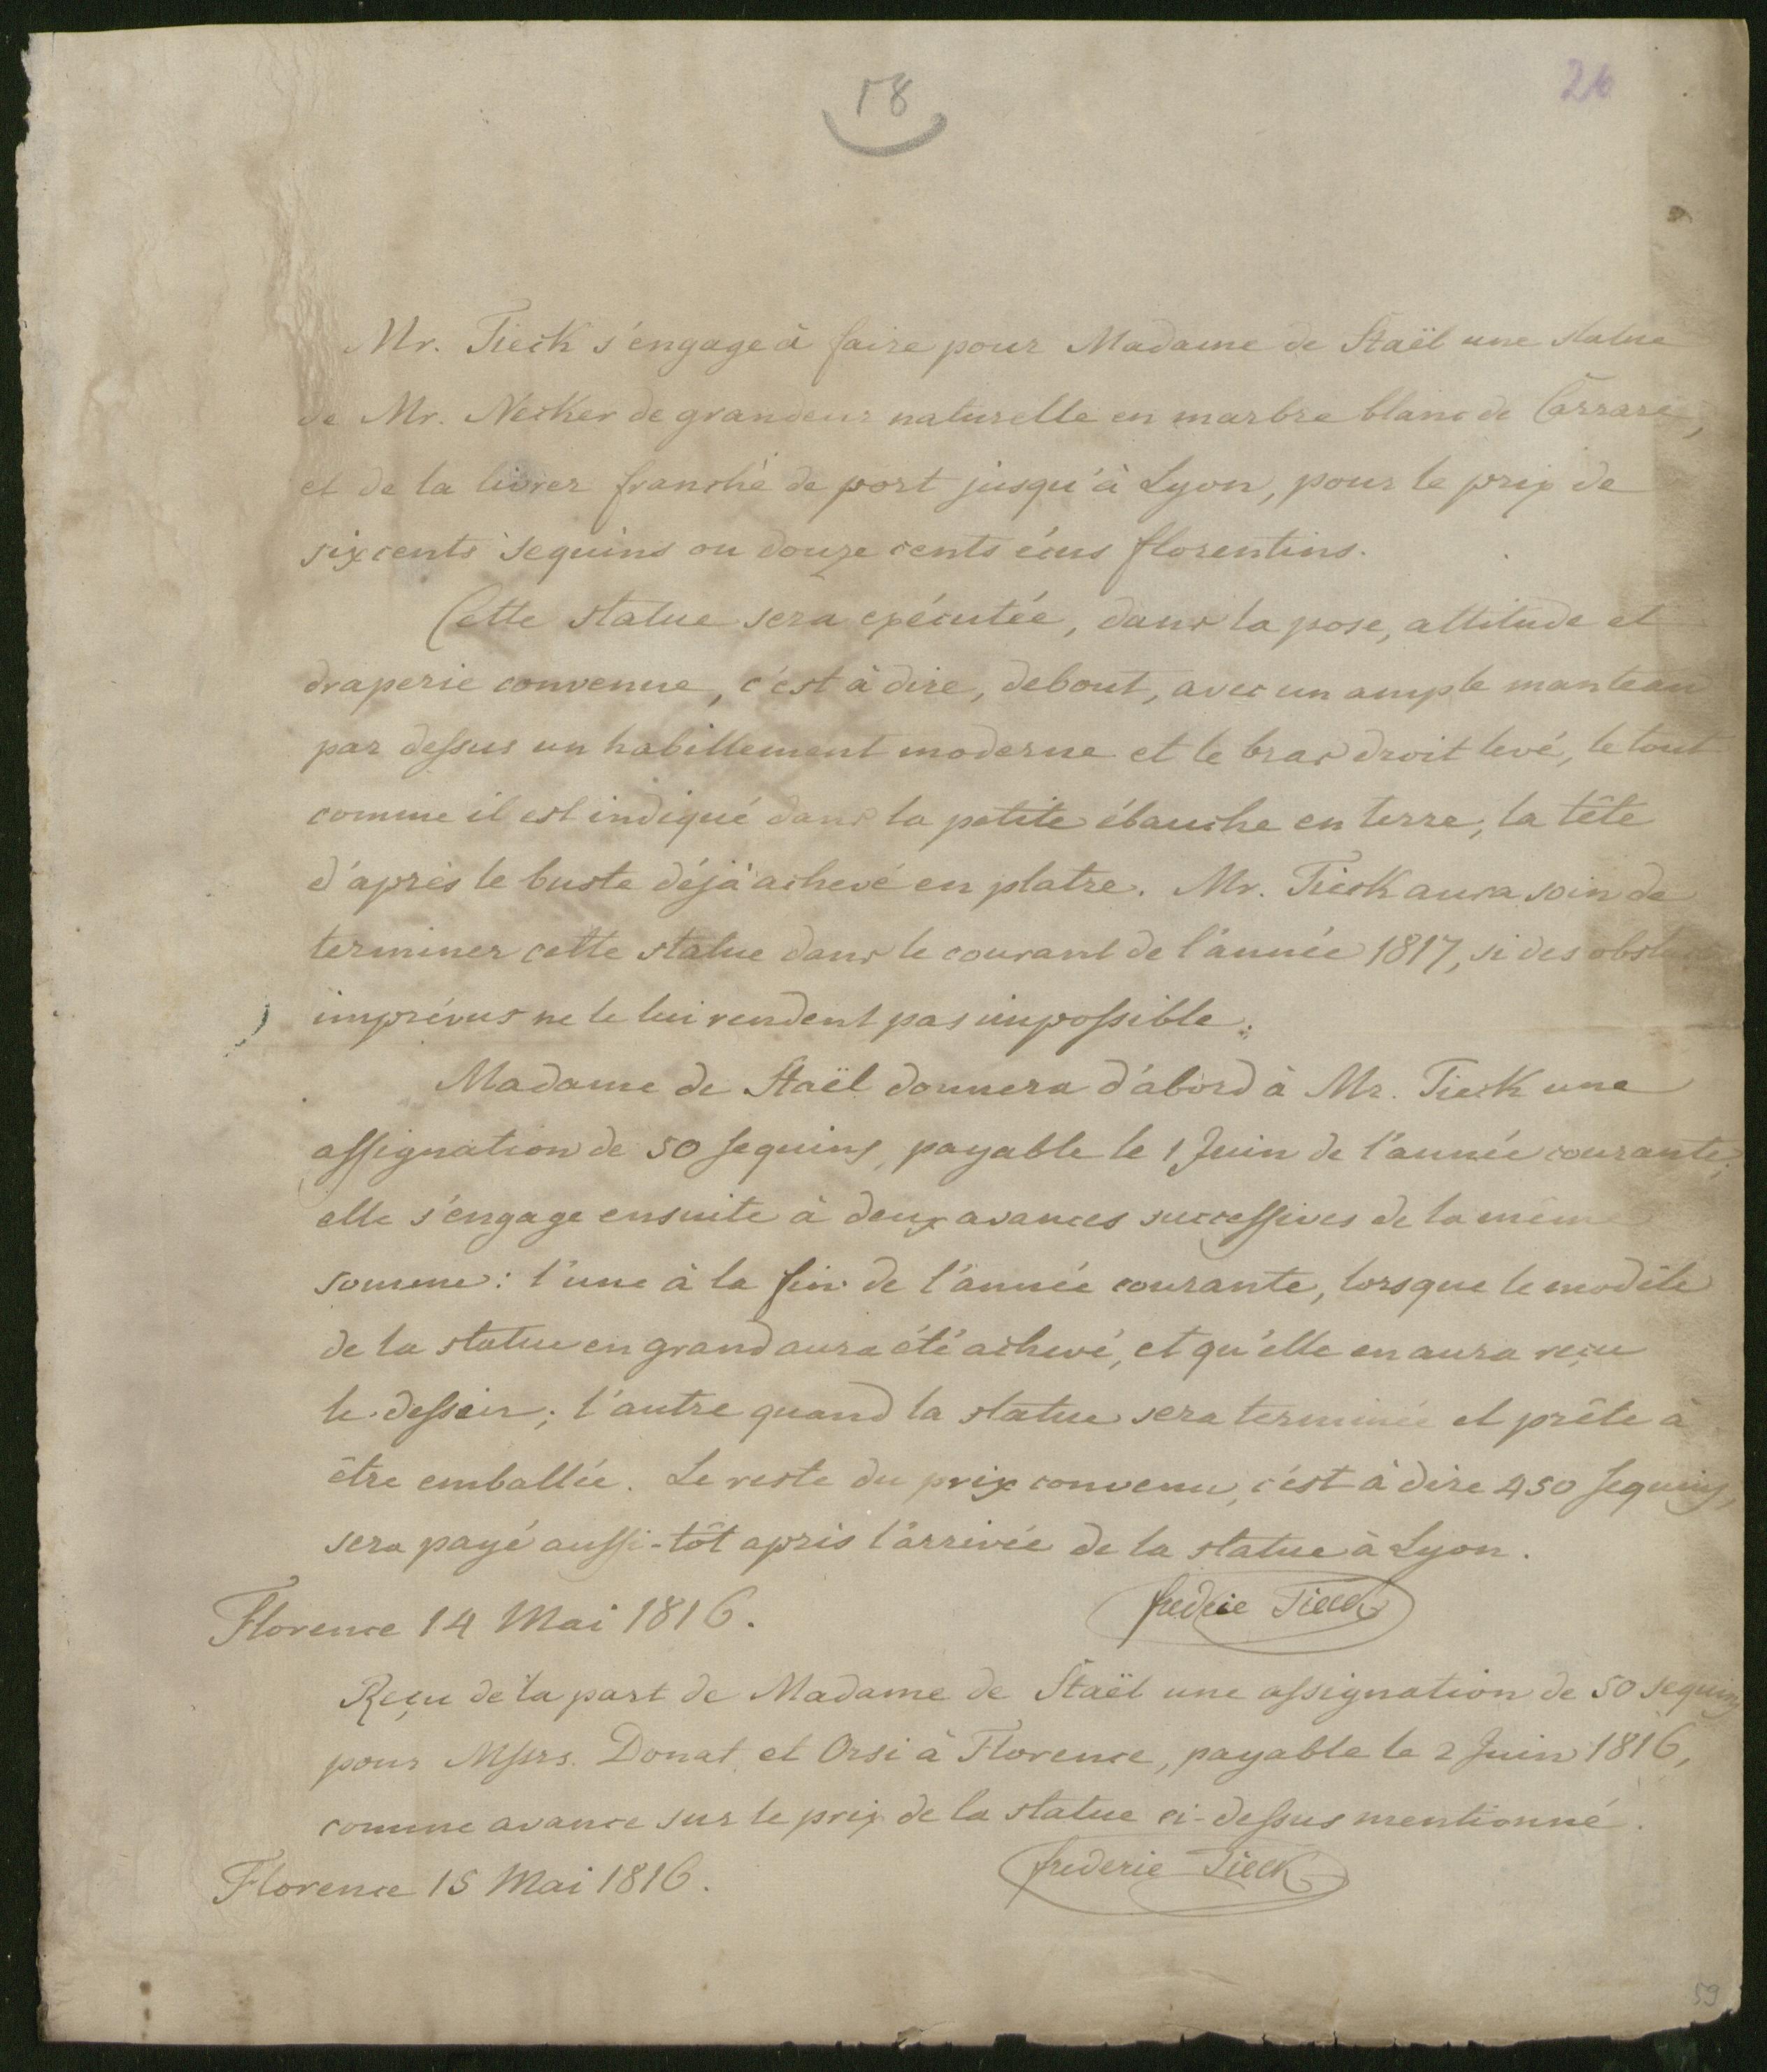 58
26
Mr. Tieck s'engage à faire pour Madame de Staël une statue
de Mr. Necker de grandeur naturelle en marbre blanc de Carrare,
et de la livrer franche de port jusqu'à Lyon, pour le prix de
six cents sequins ou douze cents écus florentins.
Cette statue sera exécutée, dans la pose, attitude et
draperie convenue, c'est à dire, debout, avec un ample manteau
par dessus un habillement moderne et le bras droit levé, le tout
comme il est indiqué dans la petite ébauche en terre, la tête
d'après le buste déjà achevé en platre. Mr. Tieck aura soin de
terminer cette statue dans le courant de l'année 1817, si des
imprévus ne le lui rendent pas impossible.
Madame de Staël donnera d'abord à Mr. Tieck une
assignation de 50 sequins, payable le 1 Juin de l'année courante;
elle s'engage ensuite à deux avances successives de la même
somme: l'une à la fin de l'année courante, lorsque le modèle
de la statue en grand aura été achevé, et qu'elle en aura reçu
le dessein; l'autre quand la statue sera terminée et prête à
être emballée. Le reste du prix convenu, c'est à dire 450 sequins,
sera payé aussi-tôt après l'arrivée de la statue à Lyon.
Florence 14 Mai 1816. frederic Tieck
Reçu de la part de Madame de Staël une assignation de 50 sequins
pour Mssrs. Donat et Orsi à Florence, payable le 2 Juin 1816,
comme avance sur le prix de la statue ci-dessus mentionné.
Florence 15 Mai 1816. frederic Tieck
59